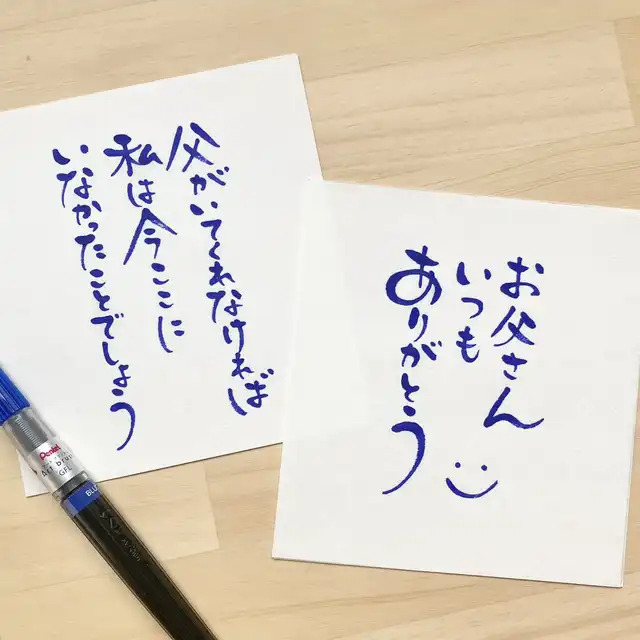 父がいてくれなければ
私は今ここに
いなかったことでしょう
お父さん
いつも
ありがとう
Pentel
Art brush
GFL
BLU